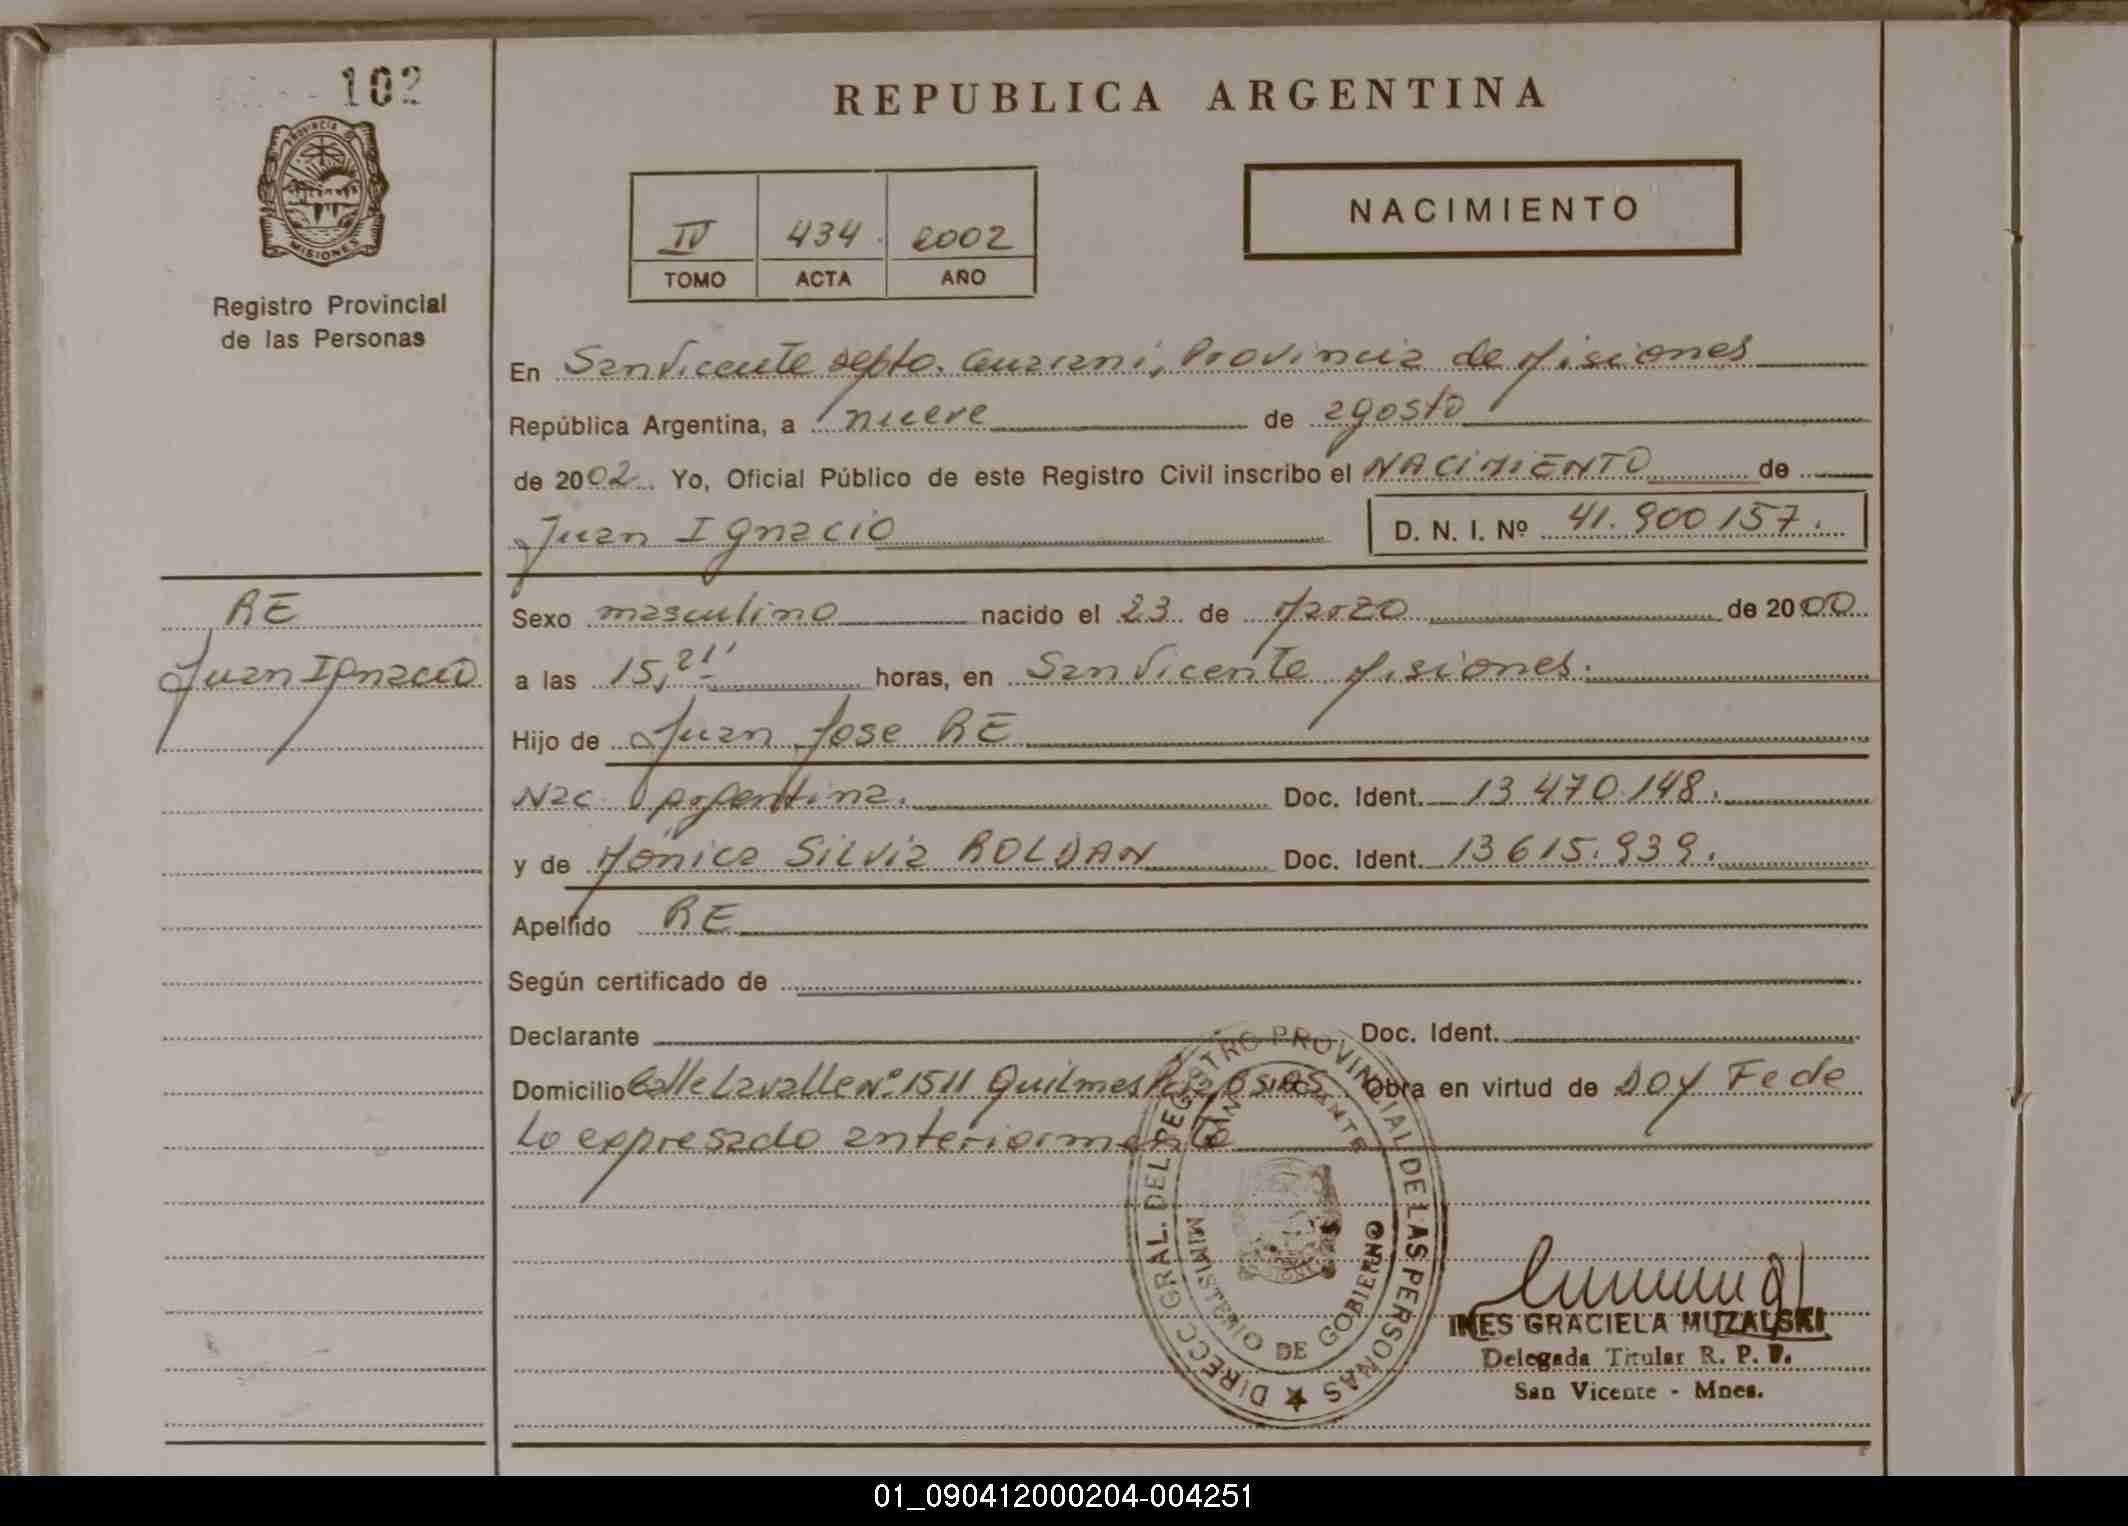 102
PROVINCIA DE
MISIONES
Registro Provincial
de las Personas
REPUBLICA ARGENTINA
IV 434 2002
TOMO ACTA AÑO
NACIMIENTO
En San Vicente depto. Guarani, Provincia de Misiones
República Argentina, a nueve de agosto
de 2002 Yo, Oficial Público de este Registro Civil inscribo el NACIMIENTO de
Juan Ignacio D. N. I. Nº 41.900157.
RE
Juan Ignacio
Sexo masculino nacido el 23 de Marzo de 2000
a las 15,21' horas, en San Vicente Misiones.
Hijo de Juan Jose RE
Nac. Argentina. Doc. Ident. 13.470.148.
y de Monica Silvia ROLDAN Doc. Ident. 13615.939.
Apellido RE
Según certificado de
Declarante Doc. Ident.
Domicilio Calle Lavalle Nº 1511 Quilmes Obra en virtud de Doy Fe de
Lo expresado anteriormente
DIRECC GRAL. DEL REGISTRO PROVINCIAL DE LAS PERSONAS
MINISTERIO DE GOBIERNO
INES GRACIELA MUZALSKI
Delegada Titular R. P. P.
San Vicente - Mnes.
01_090412000204-004251